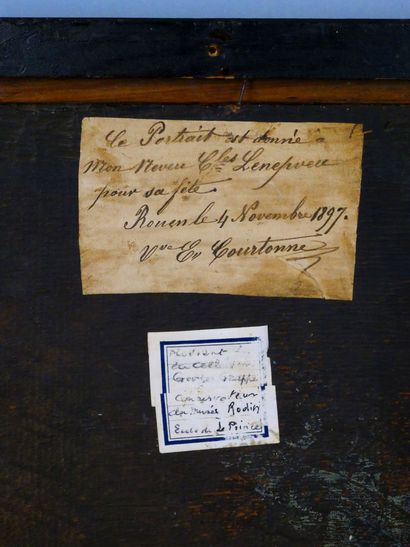 Ce Portrait est donné à
Mon Neveu Cles Lenepveu
pour sa fête.
Rouen le 4 Novembre 1897.
Vve Ev Courtonne
Georges Grappe
Conservateur
du Musée Rodin
Ecole de le Prince